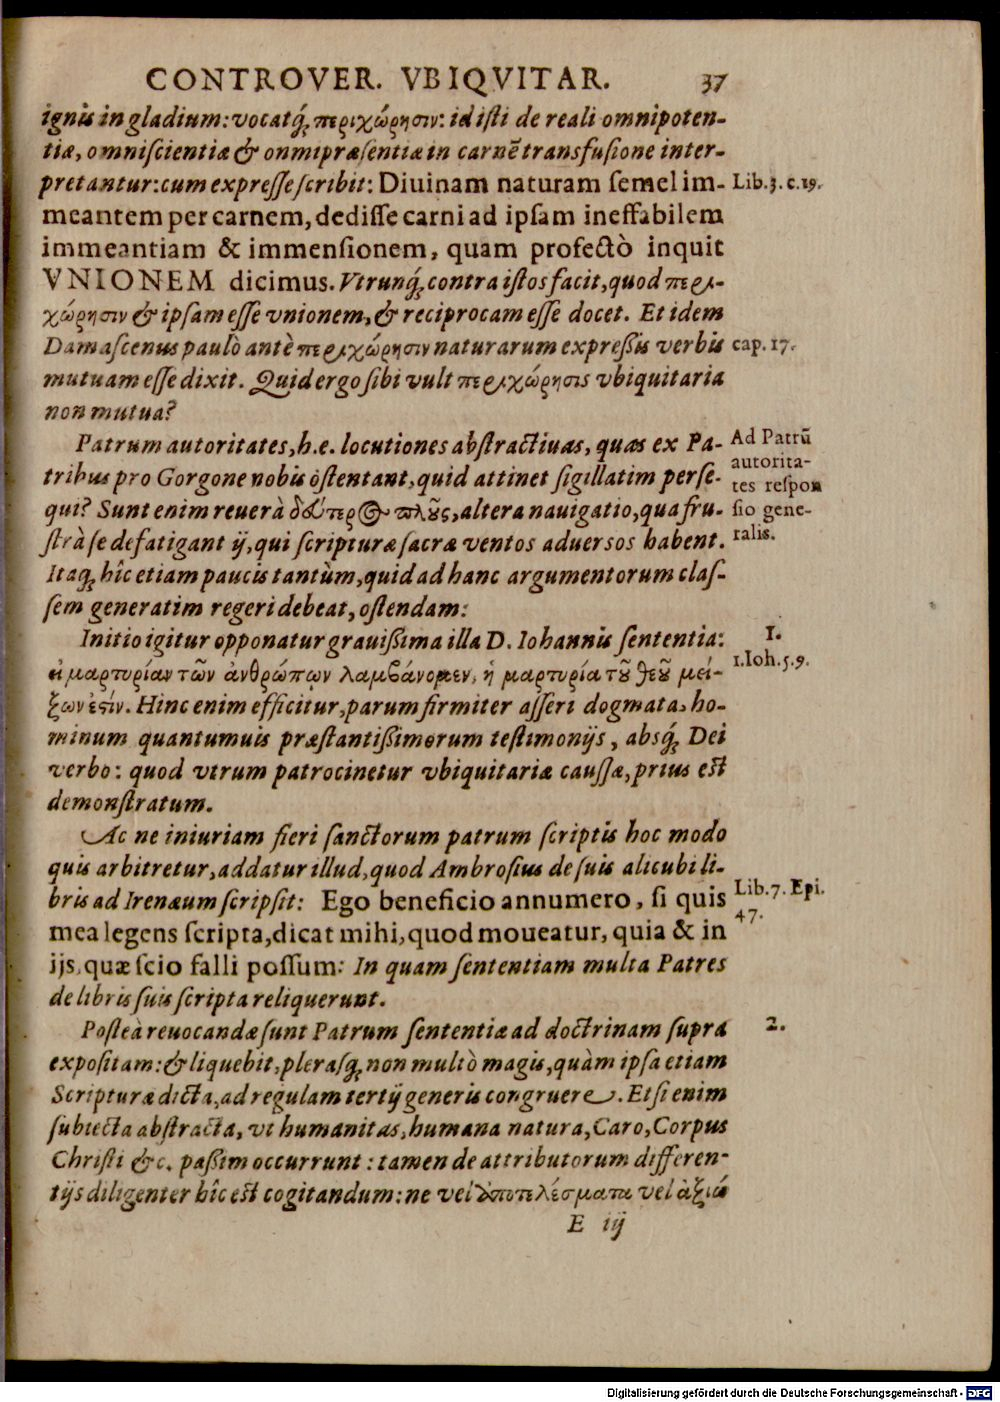 CONTROVER. VBIQVITAR. 37
ignis in gladium: vocatq́; περιχώρησιν: id isti de reali omnipoten-
tiæ, omniscientiæ & onmipræsentiæ in carnẽ transfusione inter-
pretantur: cum expresse scribit: Diuinam naturam semel im-
Lib. 3. c. 19.
meantem per carnem, dedisse carni ad ipsam ineffabilem
immeantiam & immensionem, quam profectò inquit
VNIONEM dicimus. Vtrunq́; contra istos facit, quod περι-
χώρησιν & ipsam esse vnionem, & reciprocam esse docet. Et idem
Damascenus paulò antè περιχώρησιν naturarum expreßis verbis
cap. 17.
mutuam esse dixit. Quid ergo sibi vult περιχώρησις vbiquitaria
non mutua?
Patrum autoritates, h.e. locutiones abstractiuas, quas ex Pa-
Ad Patrũ
autorita-
tes respon
sio gene-
ralis.
tribus pro Gorgone nobis ostentant, quid attinet sigillatim perse-
qui? Sunt enim reuerà δεύτερος πλοῦς, altera nauigatio, qua fru-
strà se defatigant ij, qui scripturæ sacræ ventos aduersos habent.
Itaq́; hîc etiam paucis tantùm, quid ad hanc argumentorum clas-
sem generatim regeri debeat, ostendam:
Initio igitur opponatur grauißima illa D. Iohannis sententia:
1.
1. Ioh. 5. 9.
εἰ μαρτυρίαν τῶν ἀνθρώπων λαμβάνομεν, ἡ μαρτυρία τοῦ θεοῦ μεί-
ζων ἐστίν. Hinc enim efficitur, parum firmiter asseri dogmata, ho-
minum quantumuis præstantißimorum testimonijs, absq́; Dei
verbo: quod vtrum patrocinetur vbiquitariæ caussæ, prius est
demonstratum.
Ac ne iniuriam fieri sanctorum patrum scriptis hoc modo
quis arbitretur, addatur illud, quod Ambrosius de suis alicubi li-
bris ad Irenæum scripsit: Ego beneficio annumero, si quis
Lib. 7. Epi.
47.
mea legens scripta, dicat mihi, quod moueatur, quia & in
ijs, quæ scio falli possum: In quam sententiam multa Patres
de libris suis scripta reliquerunt.
Posteà reuocandæ sunt Patrum sententiæ ad doctrinam supra
2.
expositam: & liquebit, plerasq́; non multò magis, quàm ipsa etiam
Scripturæ dicta, ad regulam tertij generis congruere. Etsi enim
subiecta abstracta, vt humanitas, humana natura, Caro, Corpus
Christi &c. paßim occurrunt: tamen de attributorum differen-
tijs diligenter hîc est cogitandum: ne vel ἀποτελέσματα vel ἀξιώ
E iij
Digitalisierung gefördert durch die Deutsche Forschungsgemeinschaft - DFG